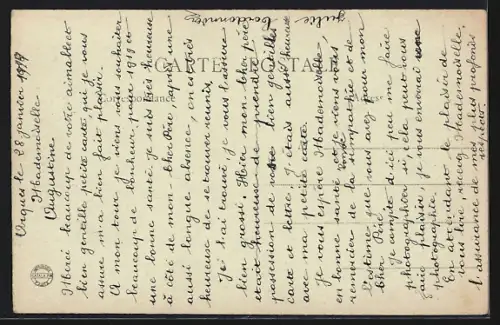 CARTE POSTALE
Correspondance
Vrigues le 28 janvier 1919
Mademoiselle
Augustine
Merci beaucoup de votre aimable et
bien gentille petite carte qui je vous
assure m'a bien fait plaisir.
A mon tour je viens vous souhaiter
beaucoup de bonheur pour 1919 et
une bonne santé je suis très heureuse
à côté de mon cher Père après une
aussi longue absence, on est très
heureuse de se trouver réunis.
Je l'ai trouvé, je vous l'assure
bien grossi. Hier mon cher père
était heureuse de prendre
possession de votre bien gentille
carte et lettre; j'étais aussi heureuse
avec ma petite carte.
Je vous espère Mademoiselle,
en bonne santé et je viens vous
remercier de la sympathie et de
l'estime que vous avez pour mon
cher Père.
Je compte d'ici peu me faire
photographier si, cela peut vous
faire plaisir, je vous enverai une
photographie.
En attendant le plaisir de
vous lire, recevez Mademoiselle,
l'assurance de mes plus profonds
respects.